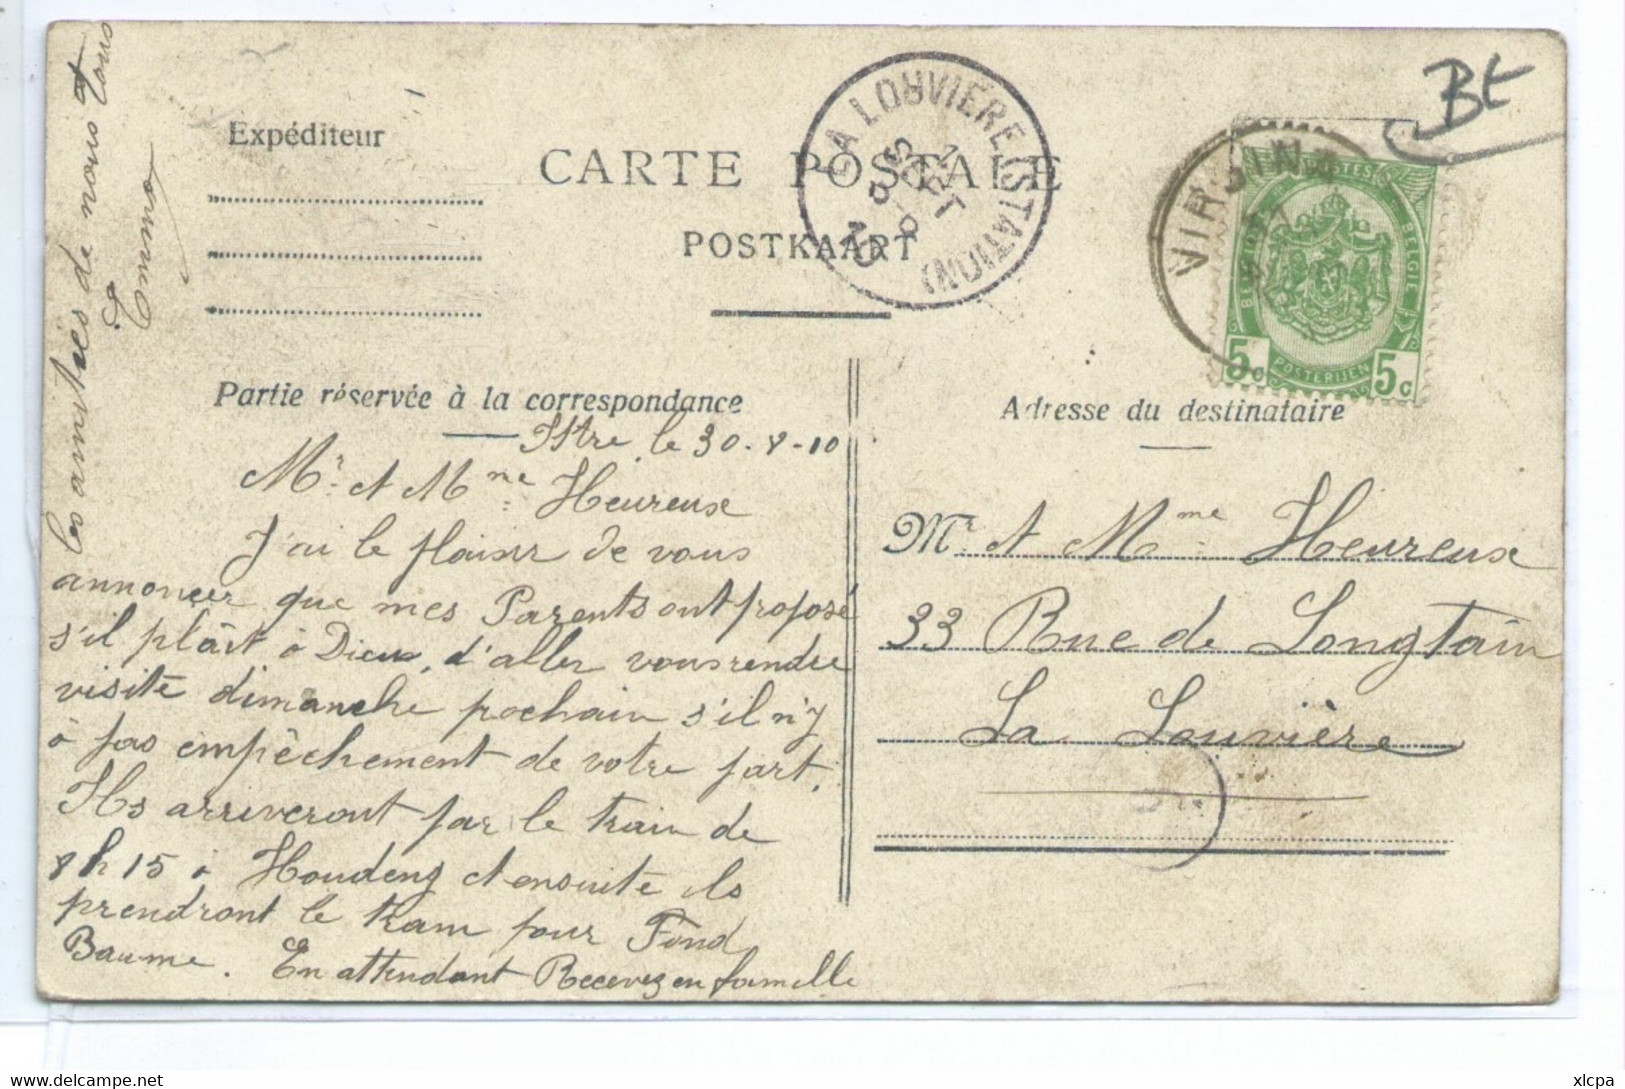 Bt
Expéditeur
CARTE POSTALE
POSTKAART
LA LOUVIÈRE (STATION)
SEPT
10
VIRGINAL
POSTES
BELGIQUE
BELGIE
POSTERIJEN
5c
5c
Partie réservée à la correspondance
Adresse du destinataire
Ittre le 30-8-10
Mr. et Mme Heureux
J'ai le plaisir de vous
annoncer que mes Parents ont proposé
s'il plâit à Dieu, d'aller vous rendre
visite dimanche prochain s'il n'y
a pas empêchement de votre part.
Ils arriveront par le train de
8h 15 à Houdeng et ensuite ils
prendront le tram pour Fond
Baume. En attendant Recevez en famille
les amitiés de nous tous
Mr. et Mme Heureux
33 Rue de Longtain
La Louvière
delcampe.net
xlcpa